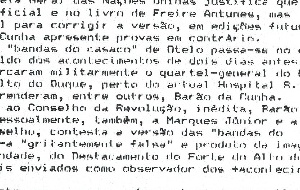 eral das Nações Unidas justifica que
ficial e no livro de Freire Antunes, mas
para corrigir a versão, em edições futur
Cunha apresente provas em contrário.
"bandas do casaco" de Otelo passa-se no
ldo dos acontecimentos de dois dias antes
rcaram militarmente o quartel-general do
lto do Duque, perto do actual Hospital S.
renderam, entre outros, Barão da Cunha.
ao Conselho da Revolução, inédita, Barão
essoalmente, também, a Marques Júnior e a
selho, contesta a versão das "bandas do
-a "gritantemente falsa" e produto de imag
ndade, do Destacamento do Forte do Alto d
is enviados como observador dos +aconteci